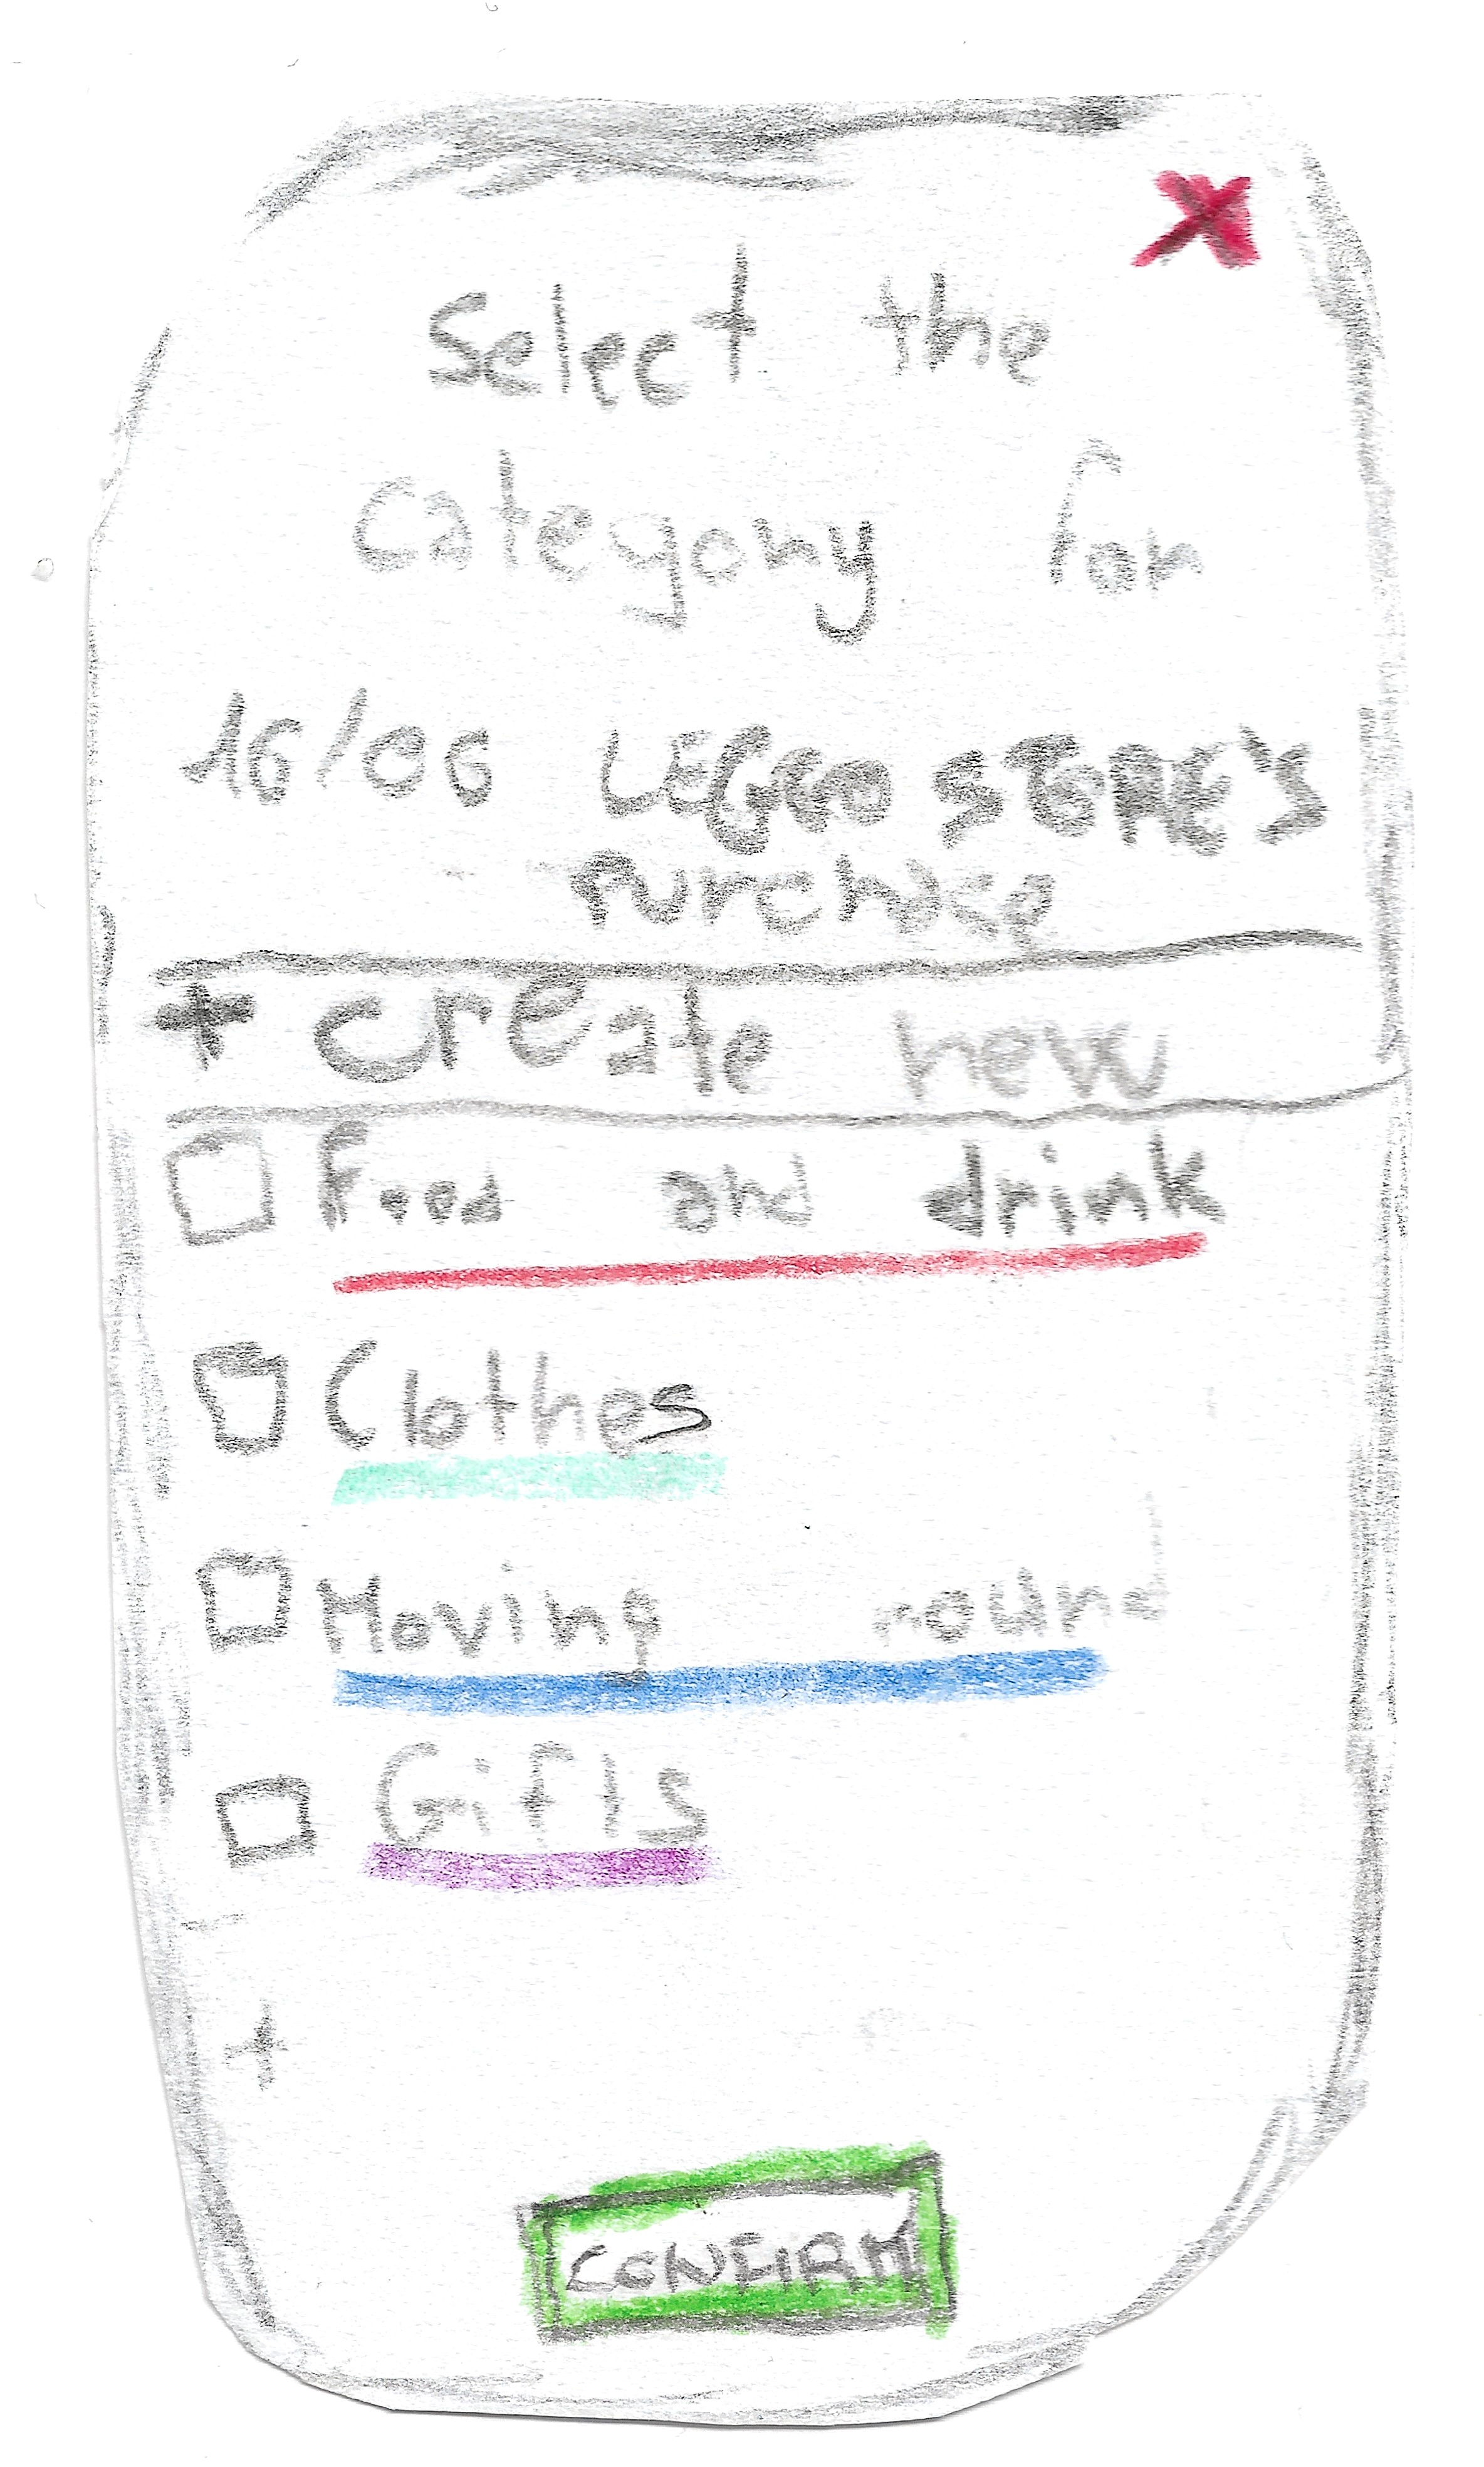 Select the
Category for
16/06 LEGEO STORE'S
Purchase
+ create new
Food and drink
Clothes
Moving round
Gifts
+
CONFIRM